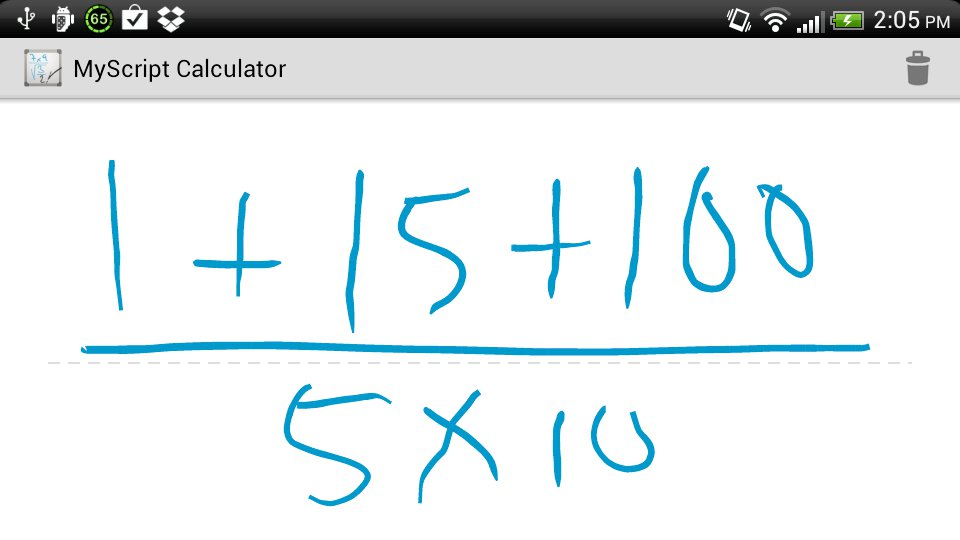 65 2:05 PM
MyScript Calculator
1 + 15 + 100
5 × 10